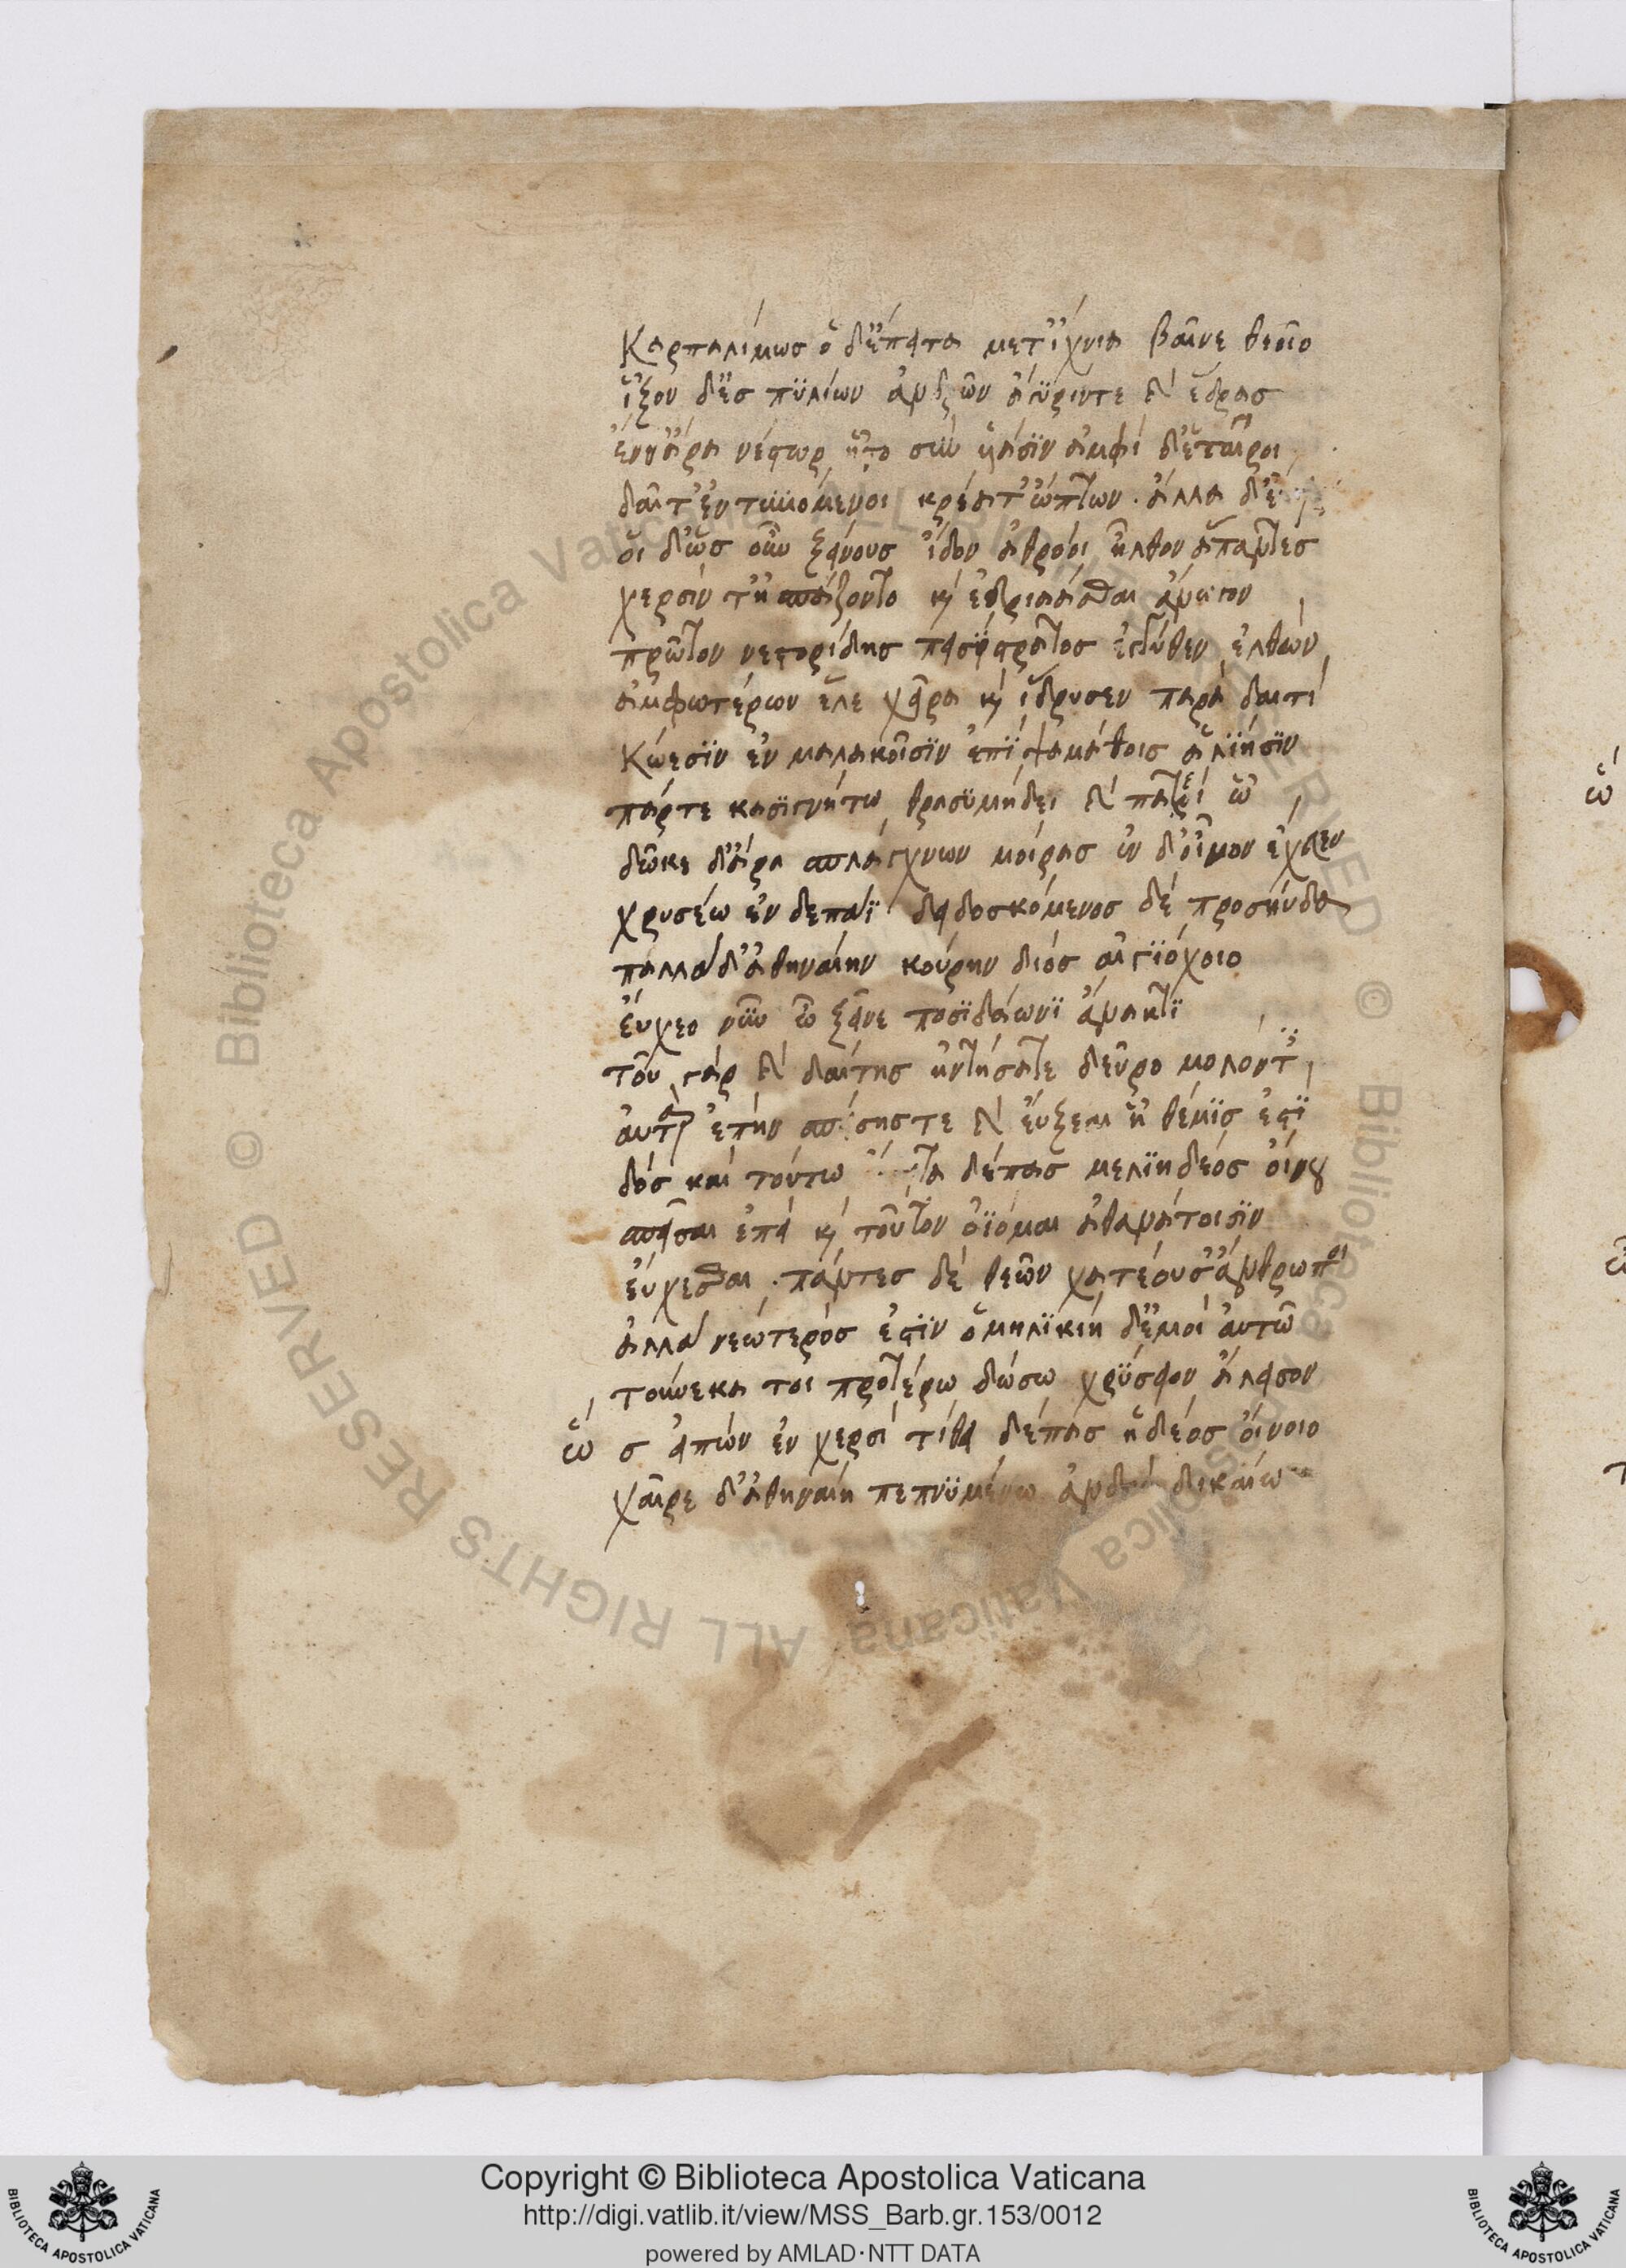 Καρπαλίμως ὁ δ' ἔπειτα μετ' ἴχνια βαῖνε θεοῖο
ἷξον δ' ἐς πϋλίων ἀνδρῶν ἄγϋρίντε καὶ ἕδρας
ἔνθ' ἄρα νέστωρ ἧστο σὺν υἱάσϊν ἀμφὶ δ' ἑταῖροι
δαῖτ' ἐντυνόμενοι κρέατ' ὤπτων. ἄλλα δ'
οἱ δ' ὡς οὖν ξείνους ἴδον ἀθρόοι ἦλθον ἅπαντες
χερσίν τ' ἠσπάζοντο καὶ ἑδριάασθαι ἄνωγον
πρῶτον νεστορίδης πεισΐστρατος ἐγγύθεν ἐλθὼν
ἀμφωτέρων ἕλε χεῖρα καὶ ἵδρυσεν παρὰ δαιτὶ
Κώεσϊν ἐν μαλακοῖσϊν ἐπῒ ψαμάθοις ἁλΐησϊν
πάρτε κασϊγνήτω θρασϋμήδεϊ καὶ πατέρι ὧ
δῶκε δ' ἄρα σπλάγχνων μοίρας ἐν δ' οἶνον ἔχευεν
χρυσέω ἐν δεπαϊ δειδοσκόμενος δὲ προσηύδα
παλλάδ' ἀθηναίην κούρην διὸς αἰγϊόχοιο
εὔχεο νῦν ὦ ξεῖνε ποσϊδάωνϊ ἄνακτϊ
τοῦ γὰρ καὶ δαίτης ἠντήσατε δεῦρο μολόντες
αὐτὰρ ἐπὴν σπείσηστε καὶ εὔξεαι ἣ θέμϊς ἐστϊ
δὸς καὶ τούτω ἔπειτα δέπας μελϊηδέος οἴνου
σπεῖσαι ἐπεὶ καὶ τοῦτον ὀΐομαι ἀθανάτοισϊν
εὔχεσθαι. πάντες δὲ θεῶν χατέουσ' ἄνθρωποι
ἀλλὰ νεώτερός ἐστϊν ὁμηλϊκίη δ' ἐμοὶ αὐτῶ
τοὔνεκα τοι προτέρω δώσω χρΰσειον ἄλεισον
ὣ ς εἰπὼν ἐν χερσὶ τίθει δέπας ἡδέος οἴνοιο
χαῖρε δ' ἀθηναίη πεπνϋμένω ἀνδρὶ δικαίω
Copyright © Biblioteca Apostolica Vaticana
http://digi.vatlib.it/view/MSS_Barb.gr.153/0012
powered by AMLAD·NTT DATA
BIBLIOTECA APOSTOLICA VATICANA
BIBLIOTECA APOSTOLICA VATICANA
© Biblioteca Apostolica Vaticana ALL RIGHTS RESERVED © Biblioteca Apostolica Vaticana ALL RIGHTS RESERVED